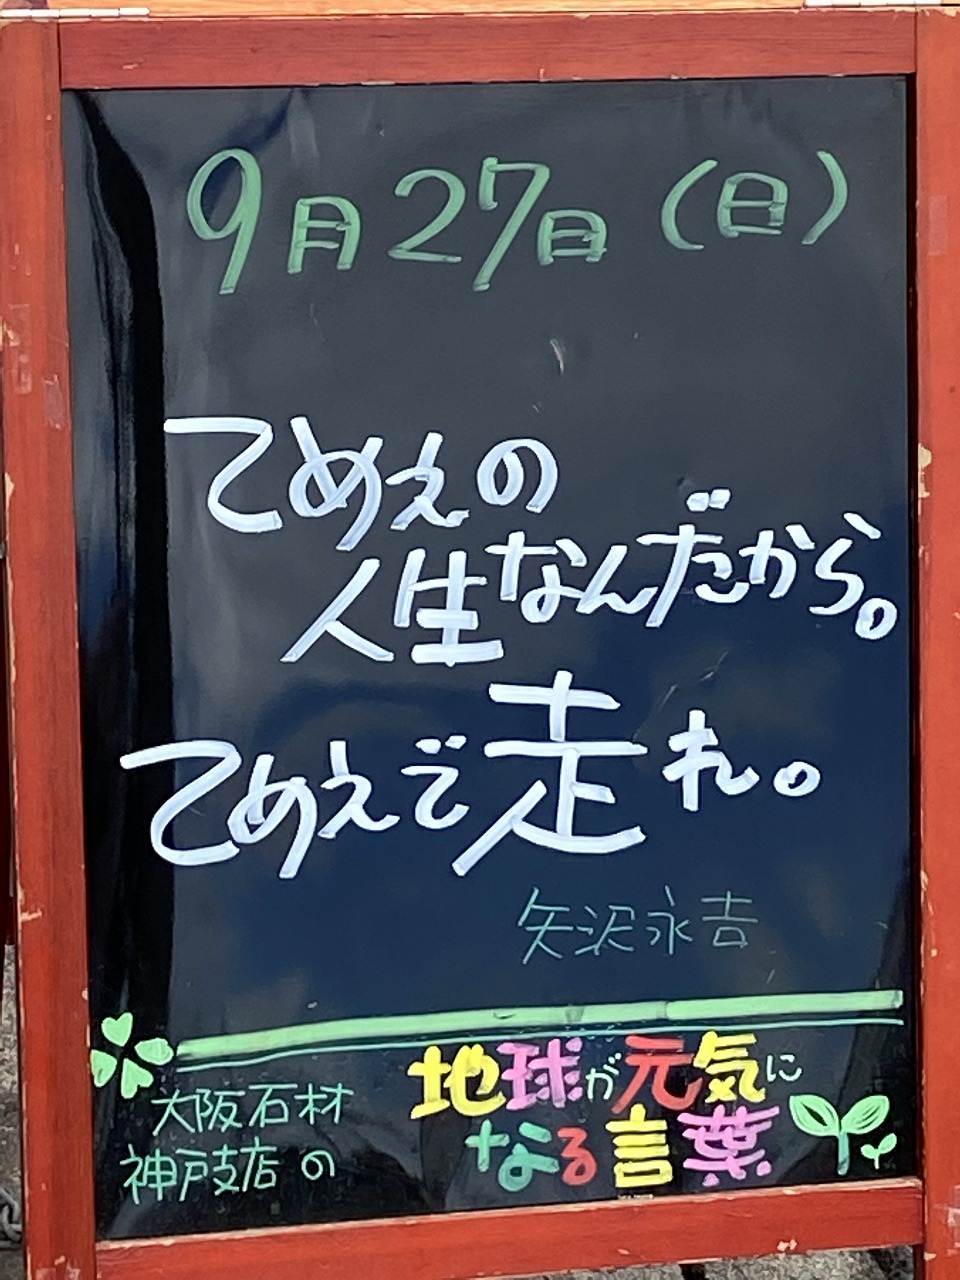 9月27日(日)
てめえの
人生なんだから。
てめえで走れ。
矢沢永吉
大阪石材
神戸支店の
地球が元気に
なる言葉